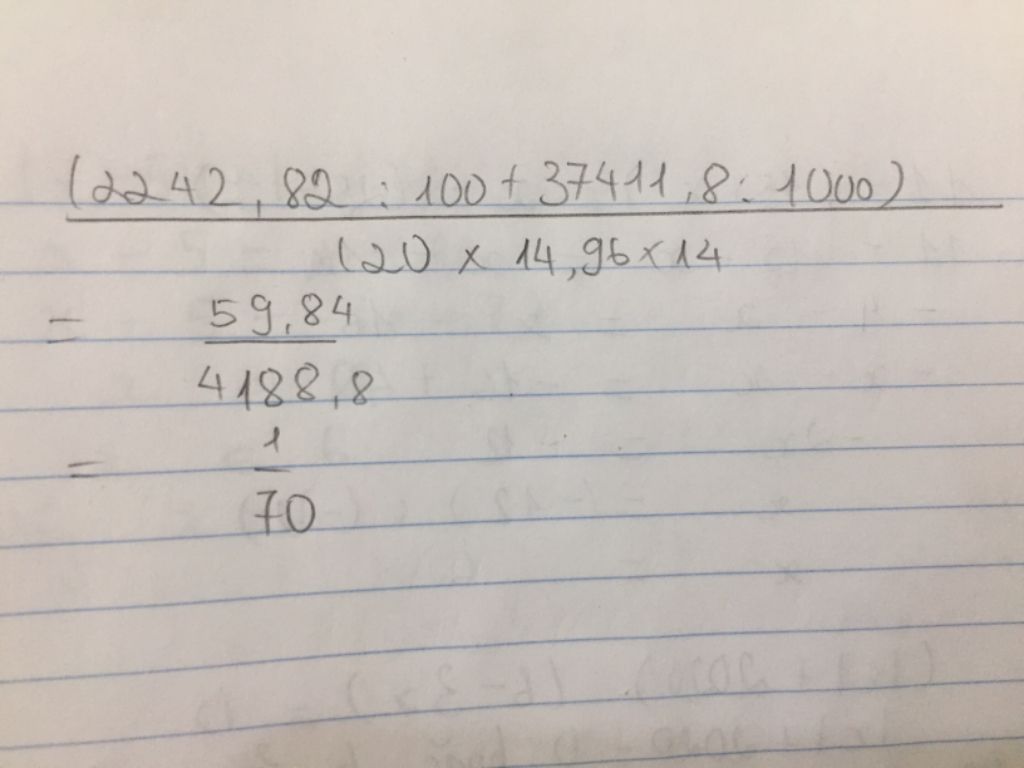 (2242,82 : 100 + 37411,8 : 1000)
(20 × 14,96 × 14
= 59,84
4188,8
= 1
70